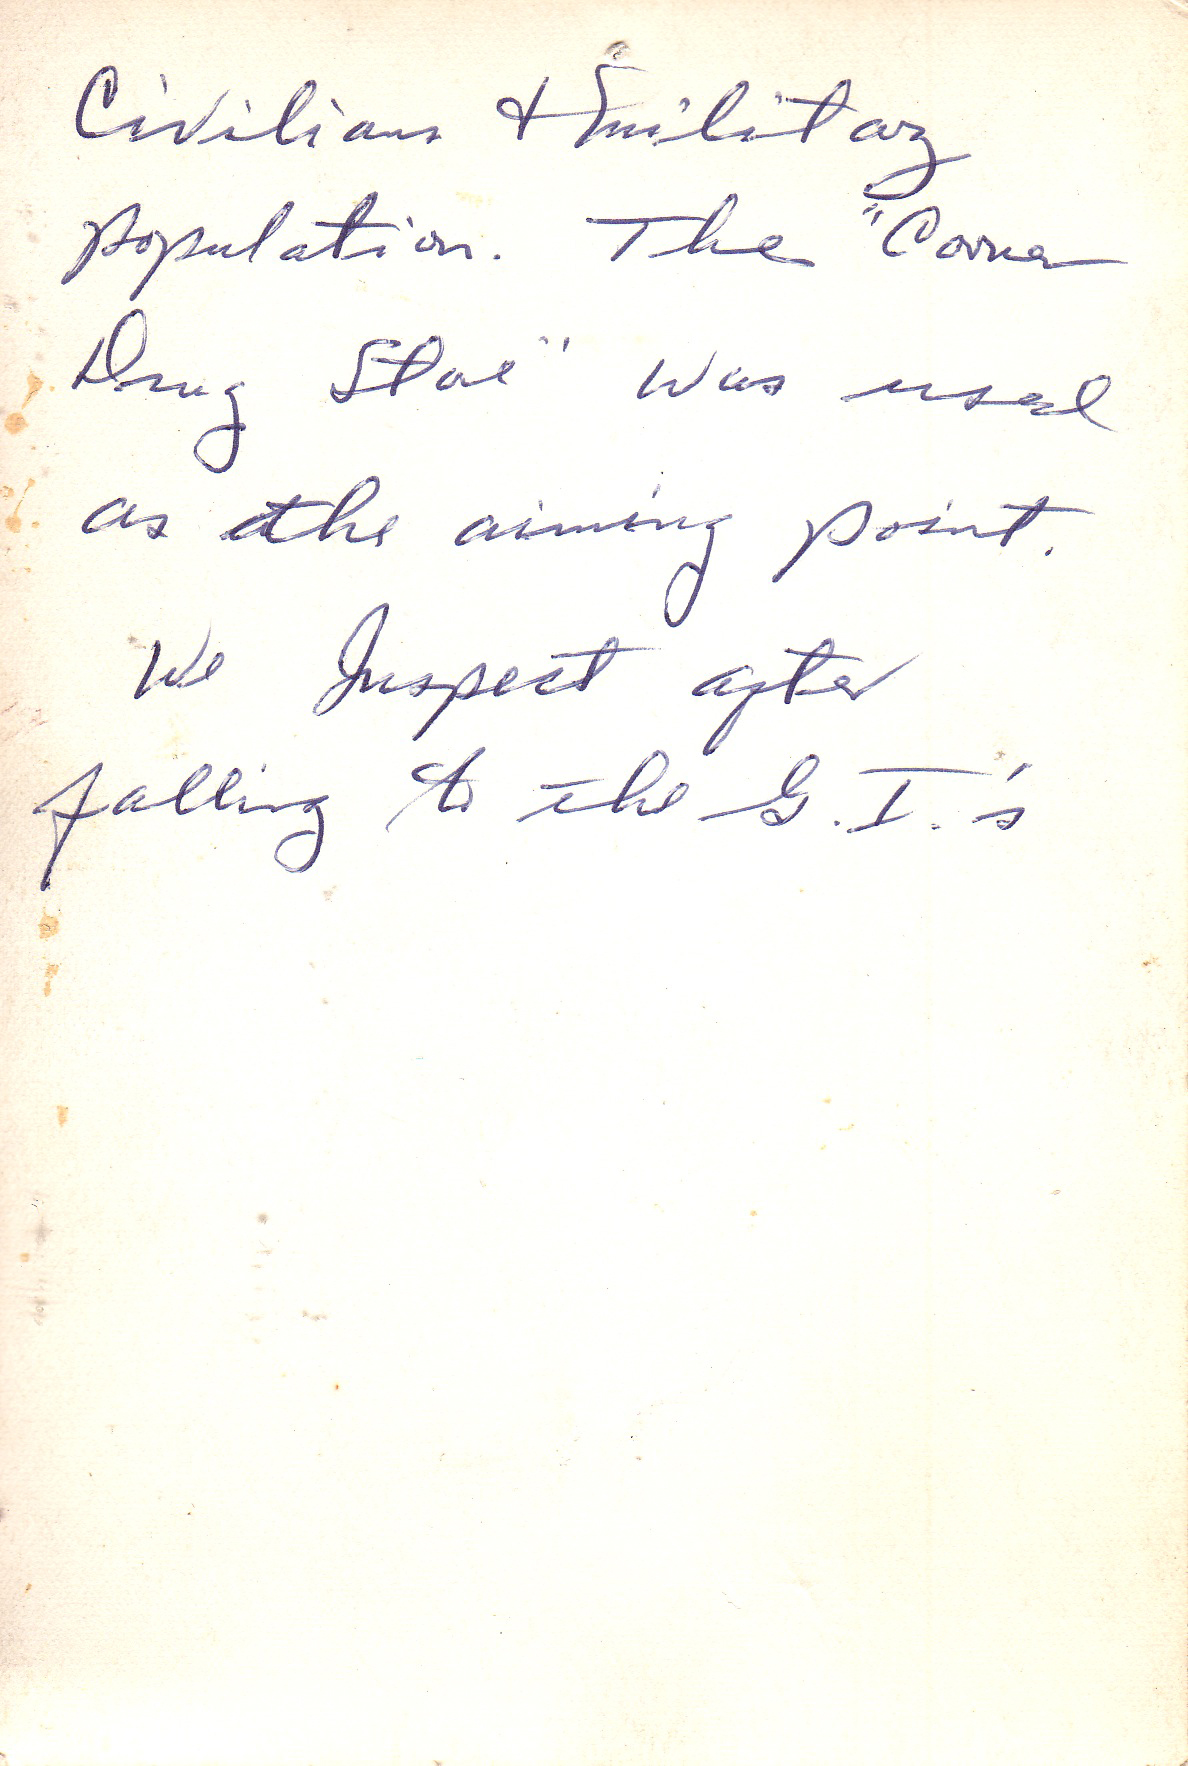 Civilians & military
population. The "Corner
Drug Store" was used
as the aiming point.
We Inspect after
falling to the G.I.'s